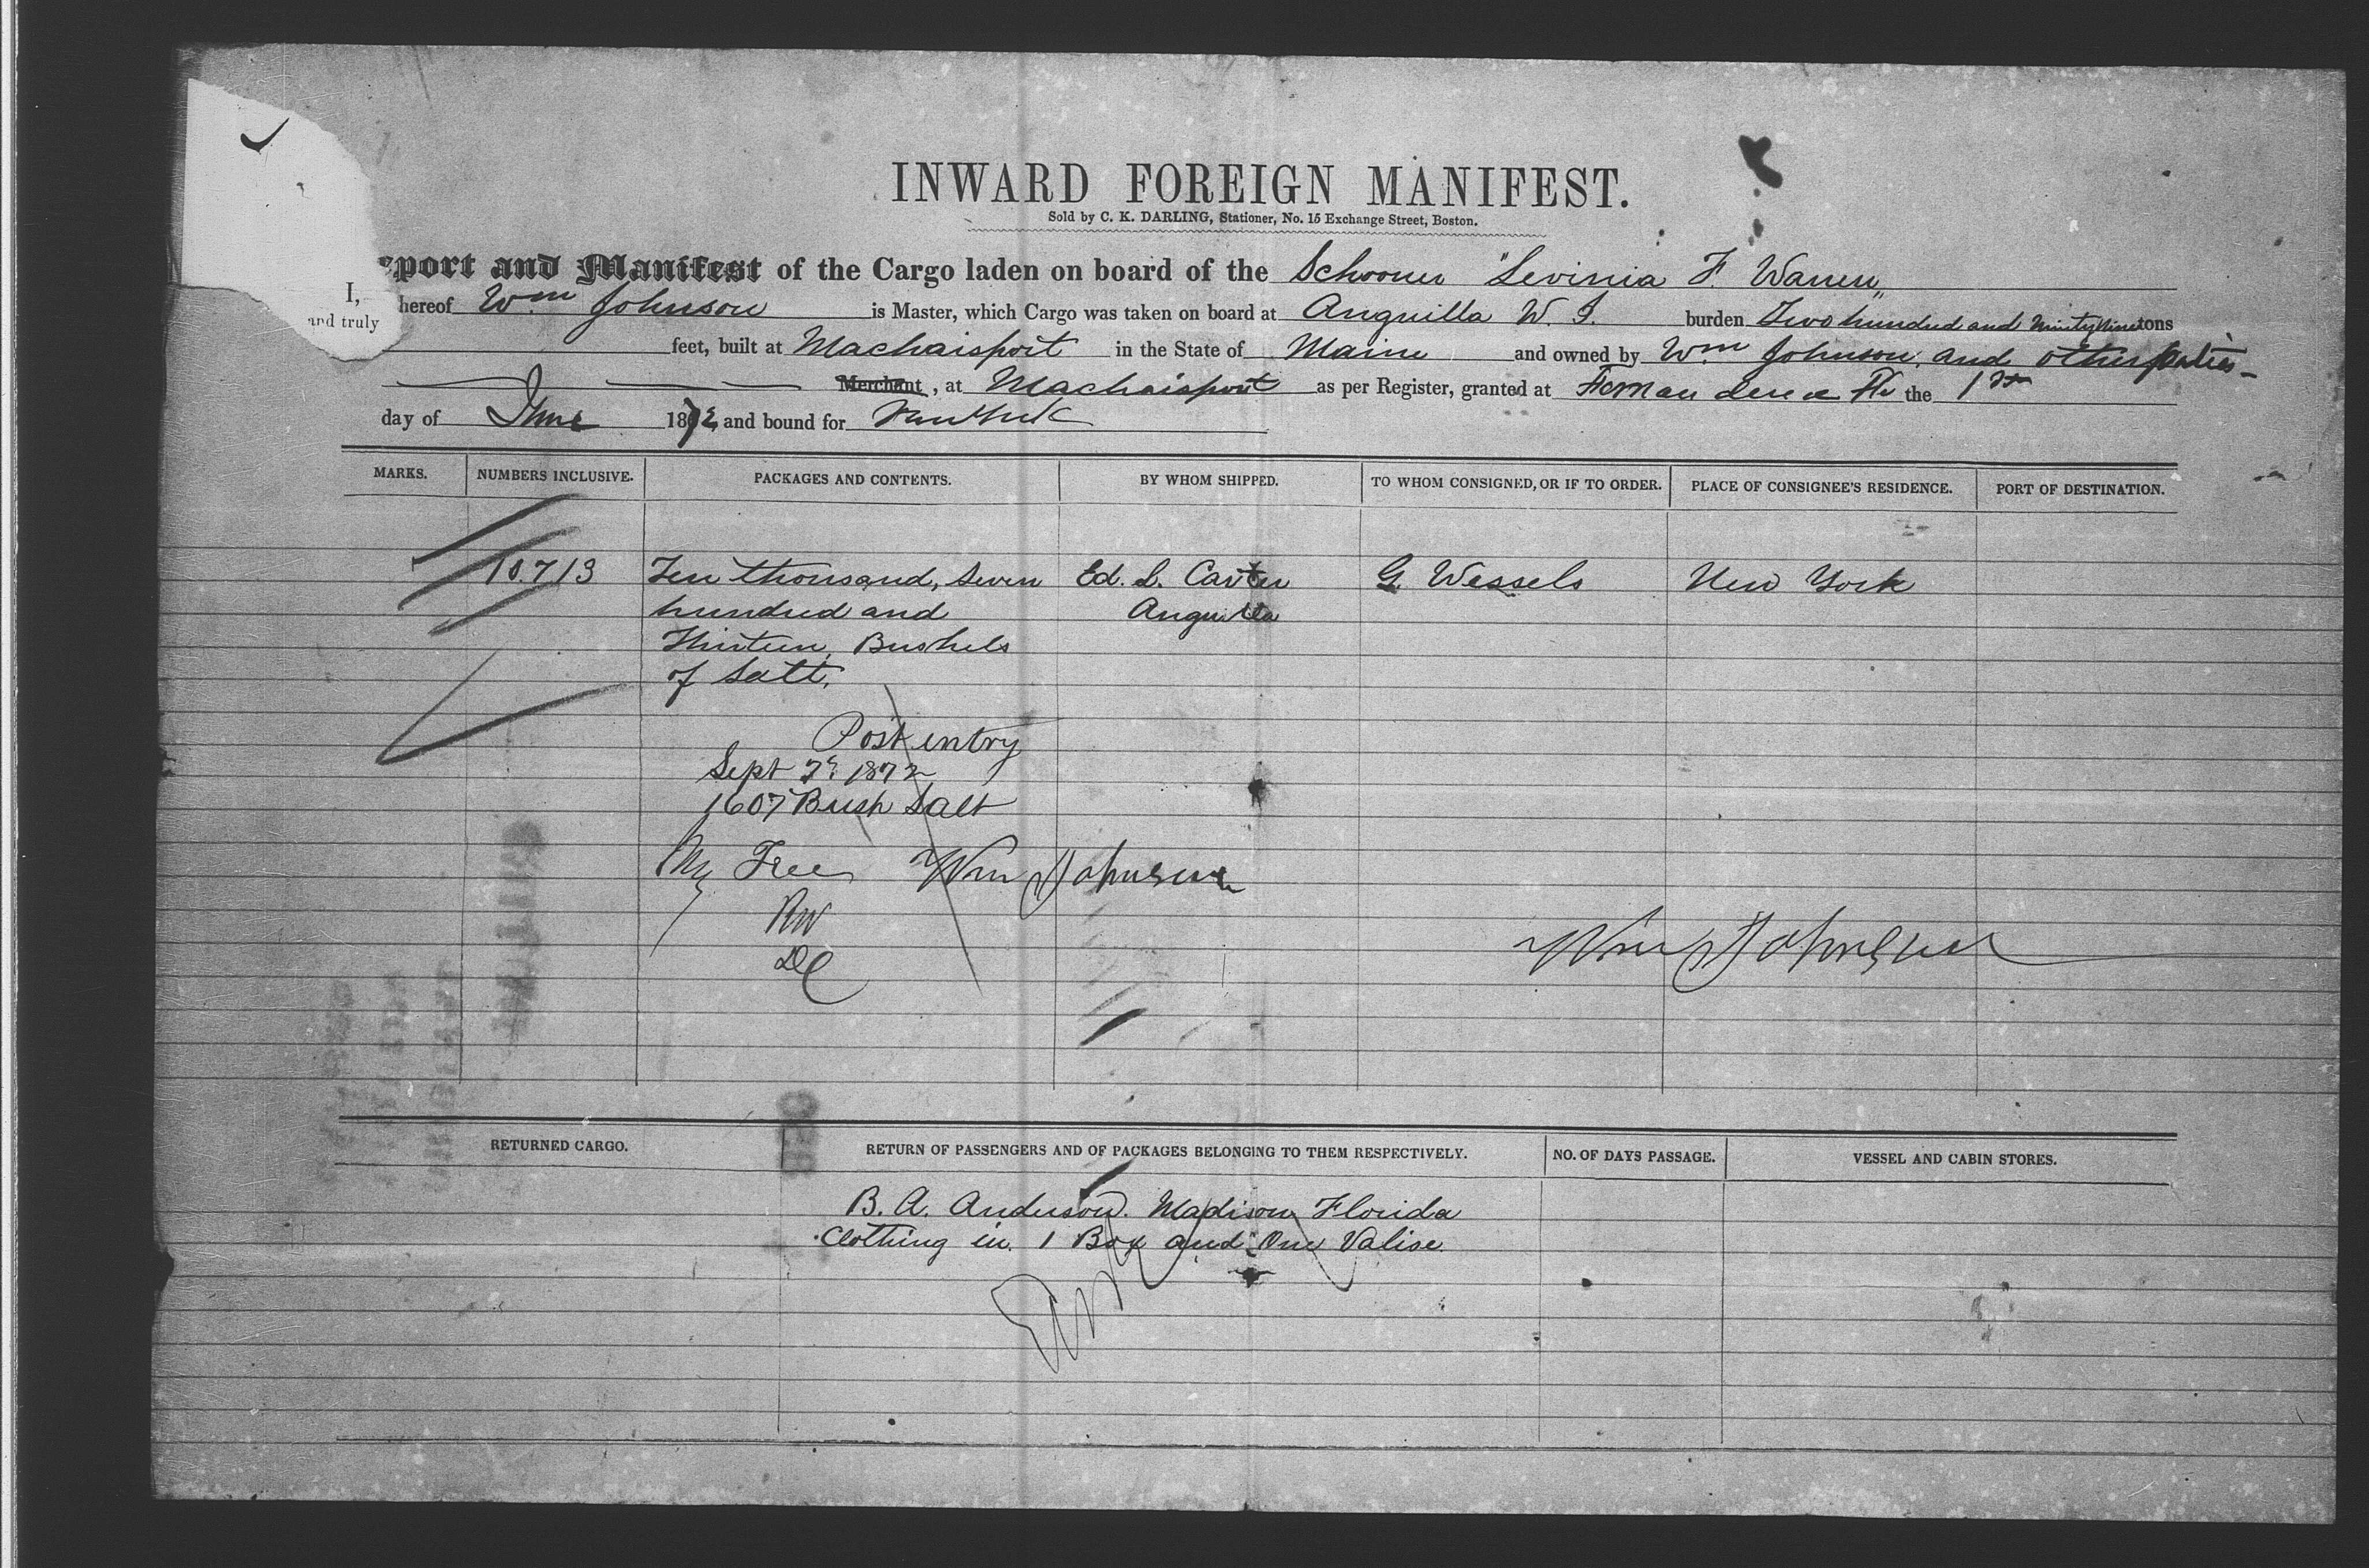 INWARD FOREIGN MANIFEST.
Sold by C. K. DARLING, Stationer, No. 15 Exchange Street, Boston.
port and Manifest of the Cargo laden on board of the Schooner "Levinia F. Warren"
I,
hereof Wm Johnson is Master, which Cargo was taken on board at Anguilla W. I. burden Two hundred and Ninety Nine tons
and truly
feet, built at Machaisport in the State of Maine and owned by Wm Johnson, and other parties
Merchant, at Machaisport as per Register, granted at Fernandena Fla the 1st
day of June 1872 and bound for New York
MARKS. NUMBERS INCLUSIVE. PACKAGES AND CONTENTS. BY WHOM SHIPPED. TO WHOM CONSIGNED, OR IF TO ORDER. PLACE OF CONSIGNEE'S RESIDENCE. PORT OF DESTINATION.
10.713 Ten thousand, Seven Ed. L. Carter G. Wessels New York
hundred and Anguilla
Thirteen, Bushels
of Salt.
Post entry
Sept 7 1872
1607 Bush Salt
Free Wm Johnson
RW
Wm Johnson
RETURNED CARGO. RETURN OF PASSENGERS AND OF PACKAGES BELONGING TO THEM RESPECTIVELY. NO. OF DAYS PASSAGE. VESSEL AND CABIN STORES.
B. A. Anderson. Madison Florida
Clothing in 1 Box and One Valise.